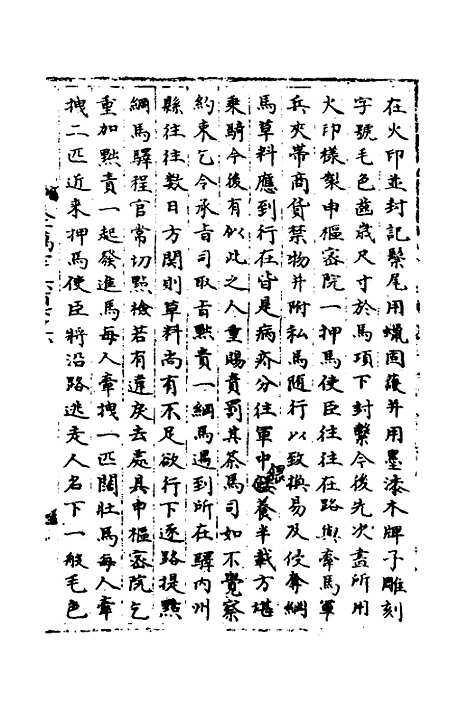 在火印並封記䯻尾用蠟固護并用墨漆木牌子雕刻
字號毛色齒歲尺寸於馬項下封繫今後先次盡所用
火印樣製申樞宻院一押馬使臣往往在路與牽馬軍
兵夾帶商貨禁物并附私馬随行以致換易及侵奪綱
馬草料應到行在皆是病瘠分住軍中餵養半載方堪
乗騎今後有似此之人重賜責罰其茶馬司如不覺察
約束乞令承㫖司取㫖黙責一綱馬遇到所在驛内州
縣往往數日方関則草料尚有不足欲行下逐路提㸃
綱馬驛程官常切㸃檢若有違戾去處具申樞宻院乞
重加黙責一起發進馬每人牽拽一匹闊壯馬每人牽
拽二匹近来押馬使臣將沿路逃走人名下一般毛色